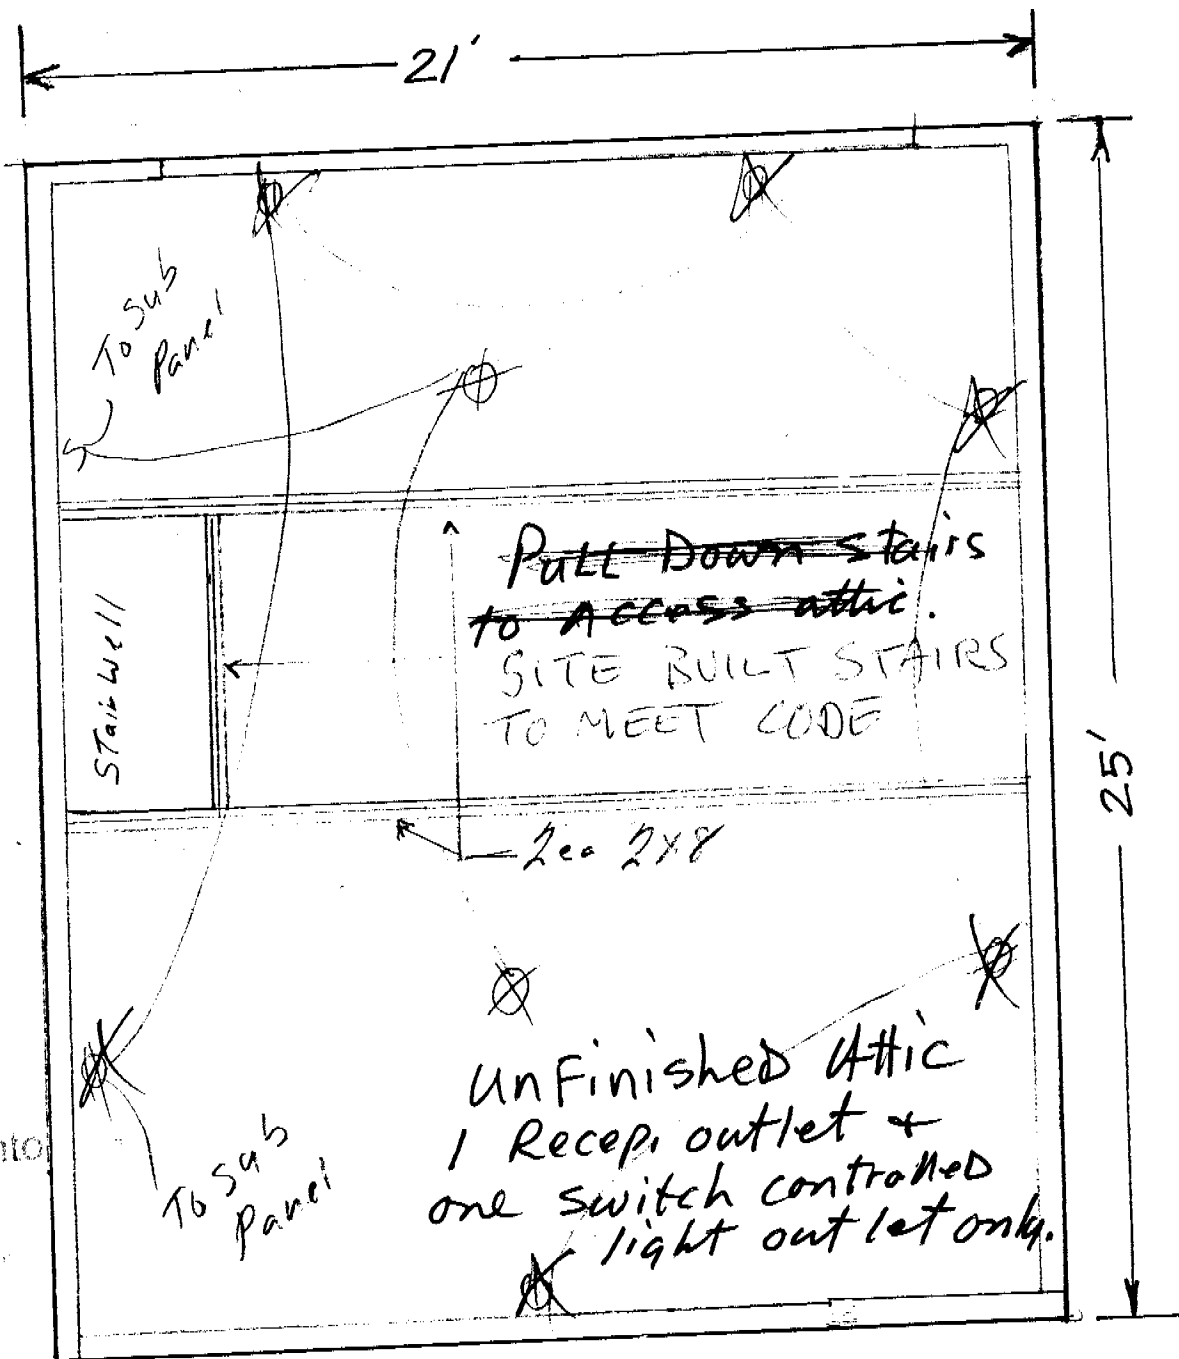 21'
To Sub
Panel
Pull Down stairs
to Access attic.
SITE BUILT STAIRS
TO MEET CODE
Stairwell
25'
2ea 2x8
UnFinished Attic
1 Recep. outlet +
one switch controlled
light outlet only.
To Sub
Panel